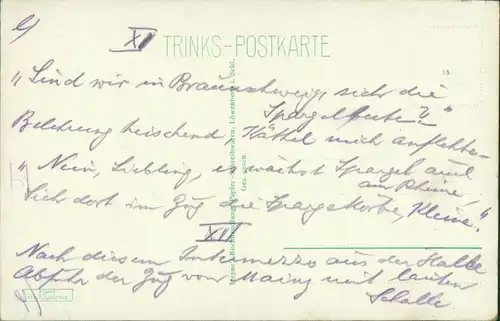 XV
TRINKS-POSTKARTE
„Sind wir in Braunschweig, sieh die
Spargelbeete?"
Belehrung heischend, Käthel mich anflehte.
„Nein, Liebling, es wächst Spargel auch
am Rheine,
Sieh dort im Zug die Spargelkörbe, Kleine."
XVI
Nach diesem Intermezzo aus der Halle
Abfuhr der Zug von Mainz mit lautem
Schalle.
Ges. gesch.
15